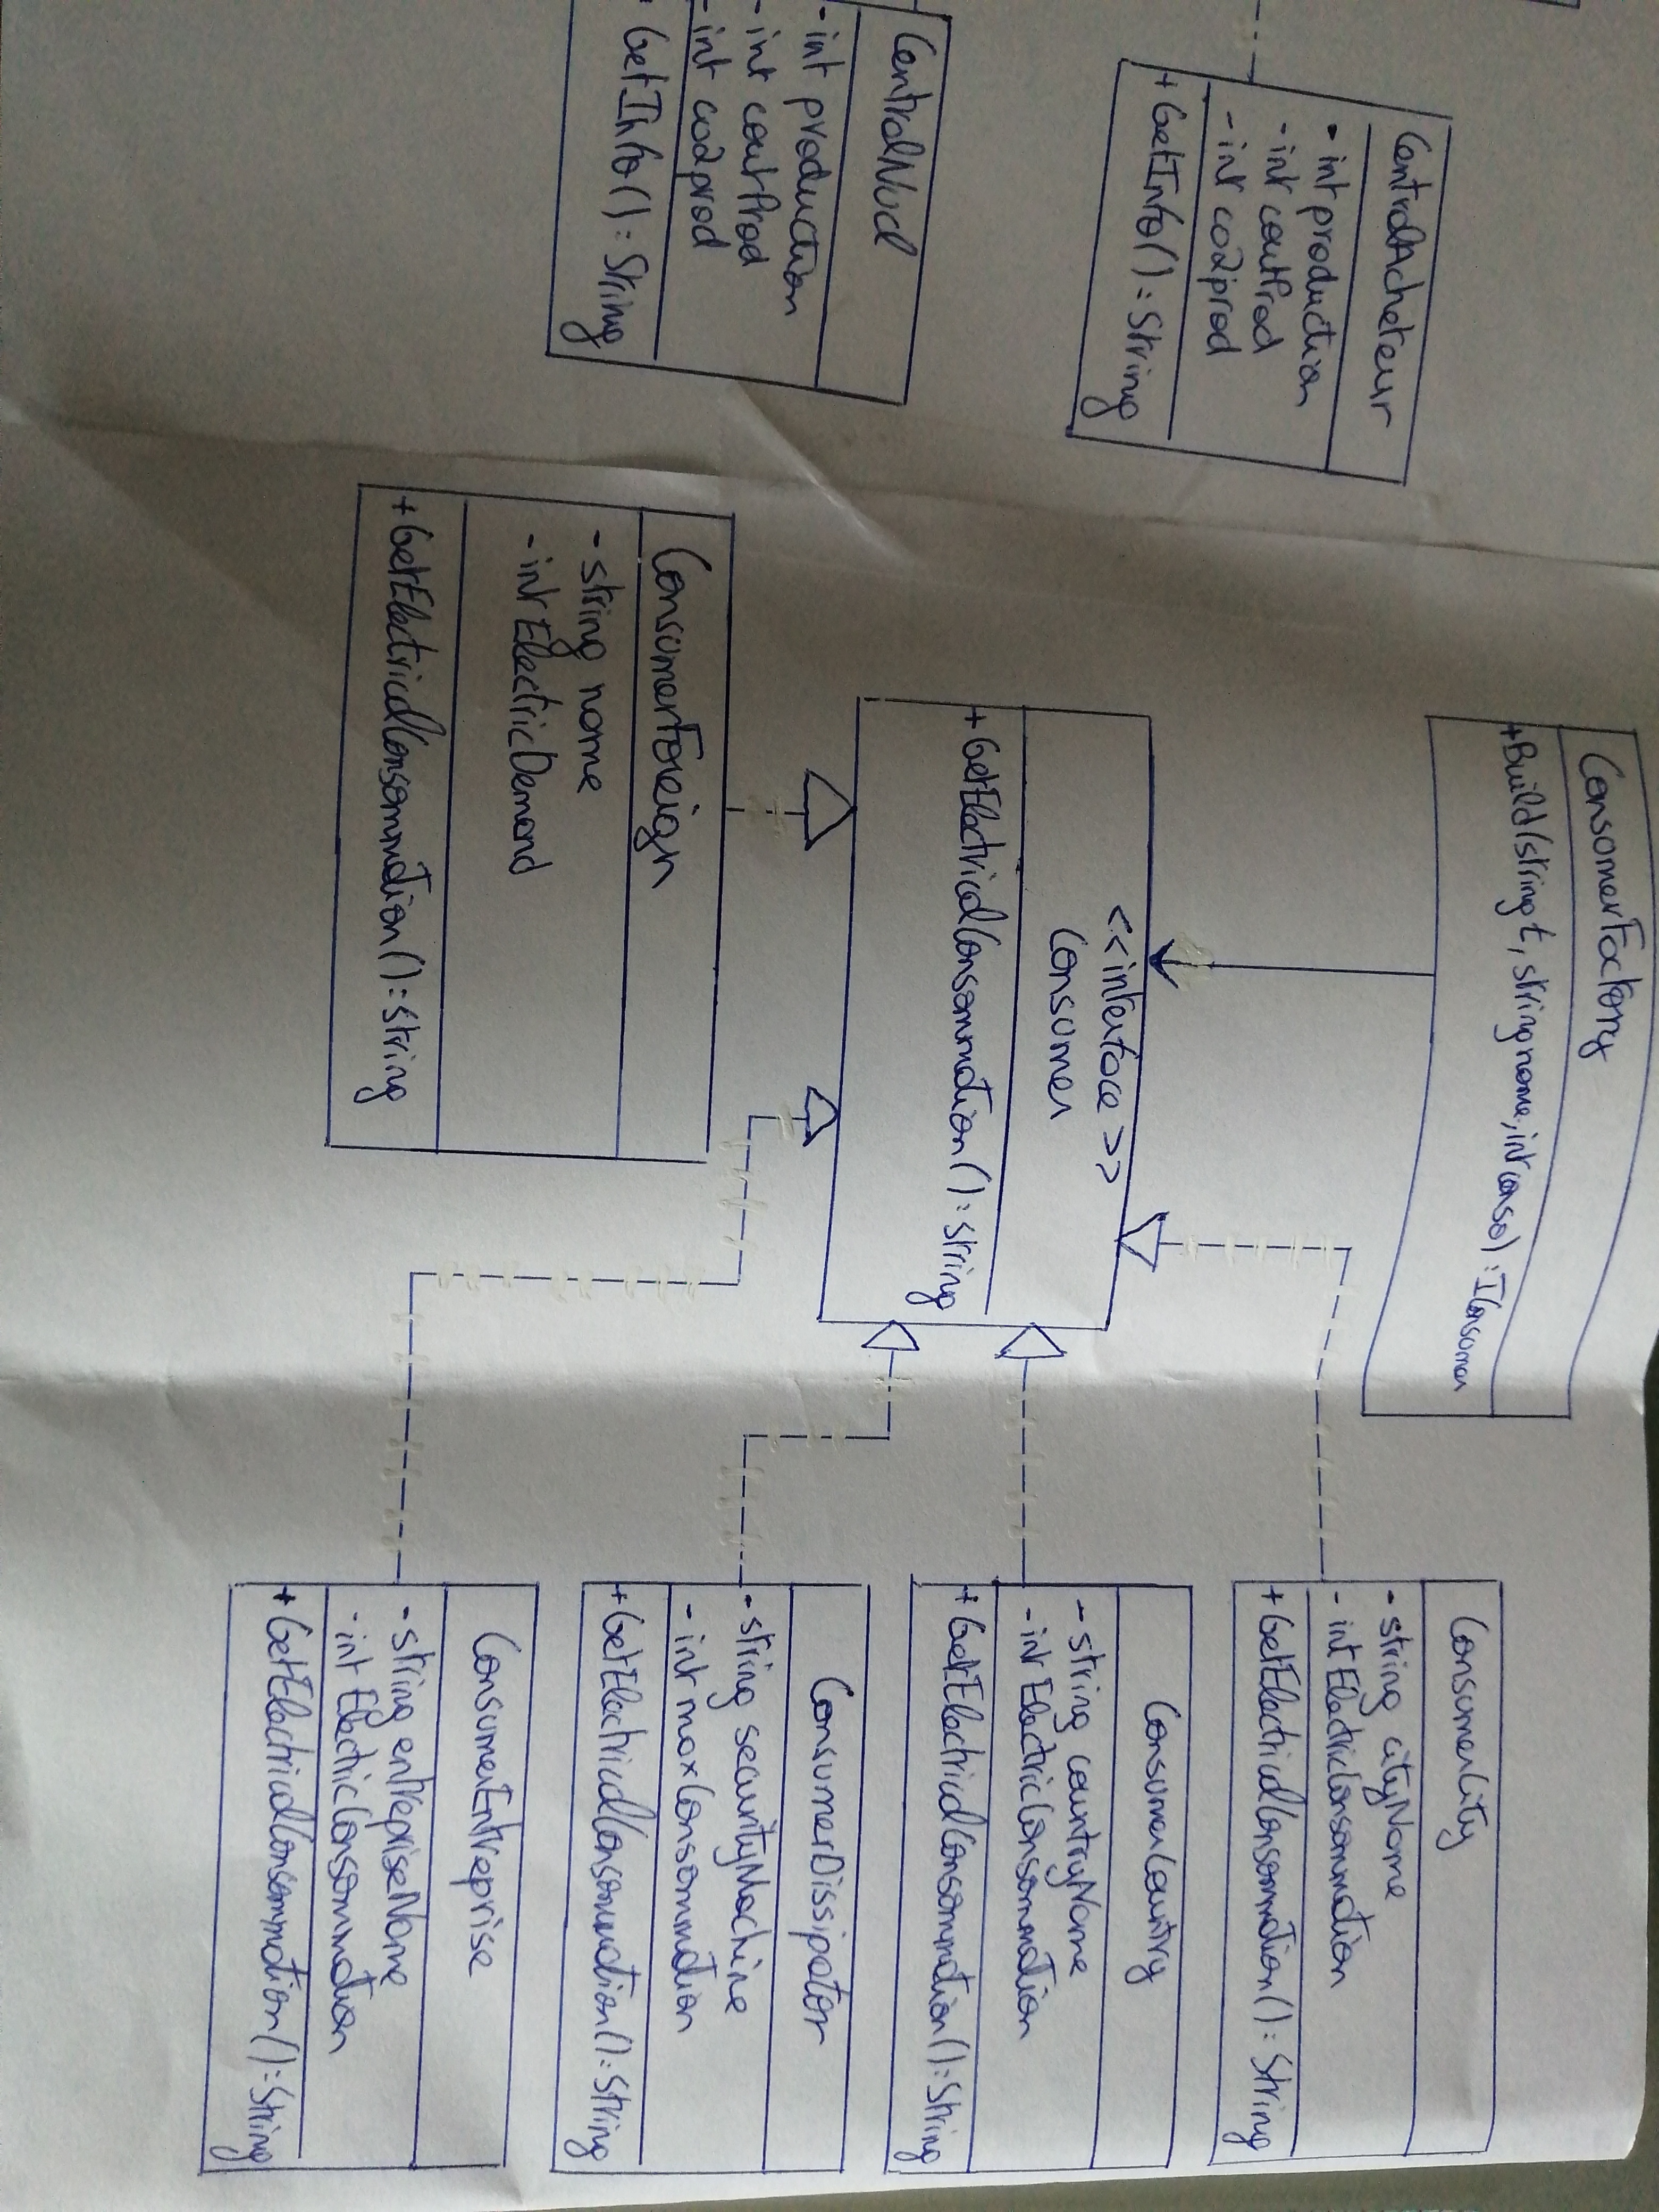 CentralAcheteur
- int production
- int coutProd
- int co2prod
+ GetInfo() : String
CentralNucl
- int production
- int coutProd
- int co2prod
GetInfo() : String
ConsomerFactory
+Build(string t, string name, int conso) : IConsumer
<<interface>>
Consumer
+ GetElectricalConsommation() : string
ConsumerForeign
- string name
- int ElectricDemand
+ GetElectricalConsommation() : string
ConsumerCity
- string cityName
- int ElectricConsommation
+ GetElectricalConsommation() : String
ConsumerCountry
- string countryName
- int ElectricConsommation
+ GetElectricalConsommation() : String
ConsumerDissipator
- string securityMachine
- int maxConsommation
+ GetElectricalConsommation() : String
ConsumerEntreprise
- string entrepriseName
- int ElectricConsommation
+ GetElectricalConsommation() : String